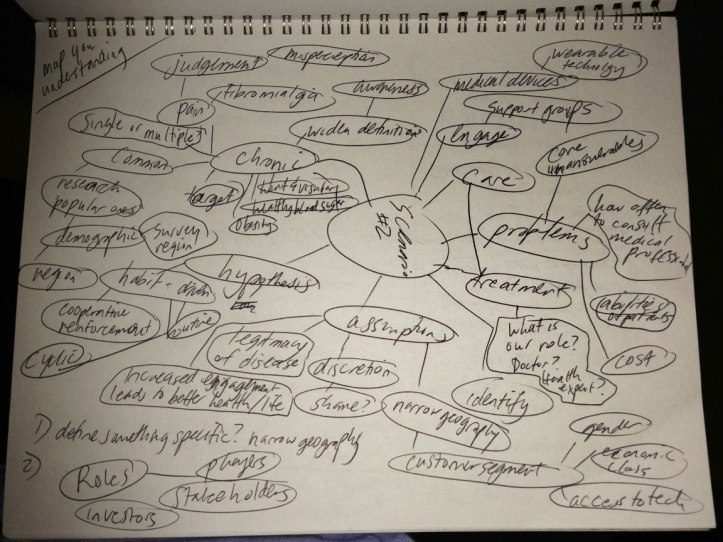 map your
understanding
judgement
misperception
wearable
technology
pain
fibromialgia
awareness
medical devices
support groups
Single or multiple?
widen definition
Engage
common
chronic
care
core
unanswerables
target
heart disease
healthy blood sugar
obesity
Scenario
#2
problems
how often
to consult
medical
professional
research
popular ones
demographic
survey
region
region
habit-driven
hypothesis
treatment
abilities
of patients
cooperative
reinforcement
routine
cyclic
assumptions
legitimacy
of disease
discretion
What is
our role?
Doctor?
Health
expert?
COST
Increased engagement
leads to better health/life
shame?
narrow
geography
identify
gender
1) define something specific? narrow geography
customer segment
economic
class
2)
Roles
players
stakeholders
investors
access to tech